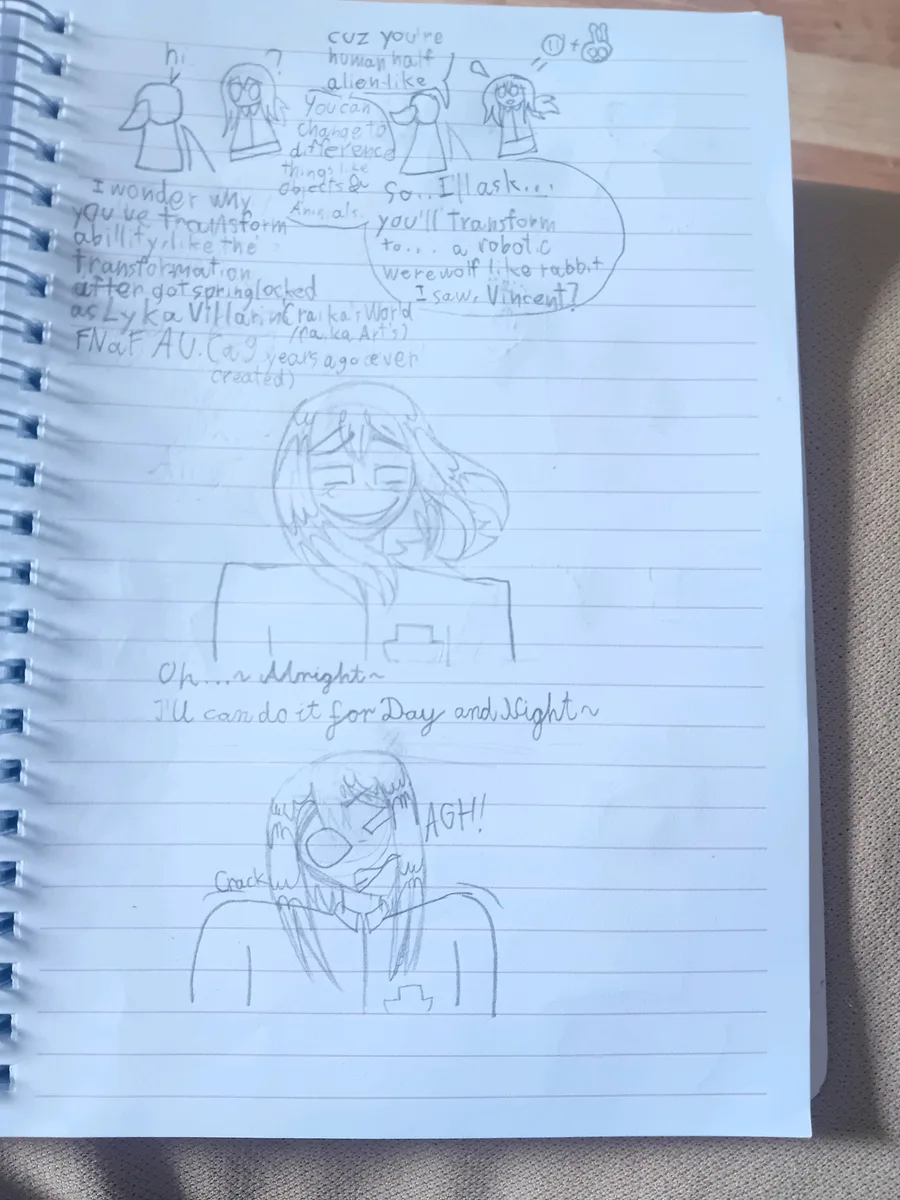 hi
?
I wonder why
you've transform
abillity, like the
transformation
after got springlocked
as Lyka Villarin(Craika's World
FNaF AU. (a 9 years ago ever
created)
cuz you're
human half
alien-like
You can
change to
difference
things like
objects &
Animals.
So.. I'll ask...
you'll transform
to.... a robotic
werewolf like rabbit
I saw, Vincent?
+
Oh...~ Alright~
I'll can do it for Day and Night~
AGH!!
Crack